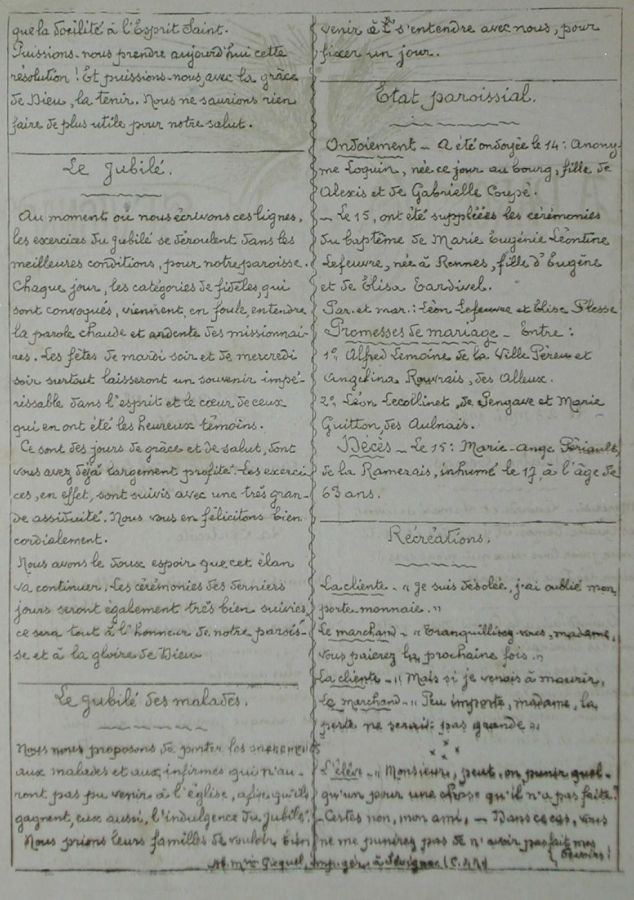 que la docilité à l'Esprit Saint.
Puissions-nous prendre aujourd'hui cette
résolution ! Et puissions-nous, avec la grâce
de Dieu, la tenir. Nous ne saurions rien
faire de plus utile pour notre salut.
Le Jubilé.
Au moment où nous écrivons ces lignes,
les exercices du jubilé se déroulent dans les
meilleures conditions, pour notre paroisse.
Chaque jour, les catégories de fidèles, qui
sont convoqués, viennent, en foule, entendre
la parole chaude et ardente des missionnai-
res. Les fêtes de mardi soir et de mercredi
soir surtout laisseront un souvenir impé-
rissable dans l'esprit et le cœur de ceux
qui en ont été les heureux témoins.
Ce sont des jours de grâce et de salut, dont
vous avez déjà largement profité. Les exerci-
ces, en effet, sont suivis avec une très gran-
de assiduité. Nous vous en félicitons bien
cordialement.
Nous avons le doux espoir que cet élan
va continuer. Les cérémonies des derniers
jours seront également très bien suivies,
ce sera tout à l'honneur de notre parois-
se et à la gloire de Dieu
Le jubilé des malades.
Nous nous proposons de porter les sacrements
aux malades et aux infirmes qui n'au-
ront pas pu venir à l'église, afin qu'ils
gagnent, eux aussi, l'indulgence du Jubilé.
Nous prions leurs familles de vouloir bien
venir à s'entendre avec nous, pour
fixer un jour.
Etat paroissial.
Ondoiement - A été ondoyée le 14 : Anony-
me Loquin, née ce jour au bourg, fille de
Alexis et de Gabrielle Coupé.
- Le 15, ont été suppléées les cérémonies
du baptême de Marie Eugénie Léontine
Lefeuvre, née à Rennes, fille d'Eugène
et de Elisa Tardivel.
Par. et mar. : Léon Lefeuvre et Elise Plesse
Promesses de mariage - Entre :
1º, Alfred Lemoine de la Ville Péreu et
Angelina Rouvrais, des Alleux.
2º Léon Lecoilinet, de Pengave et Marie
Guitton, des Aulnais.
Décès - Le 15 : Marie-Ange Périault,
de la Ramerais, inhumé le 17, à l'âge de
63 ans.
Récréations.
La cliente - "Je suis désolée, j'ai oublié mon
porte-monnaie."
Le marchand - "Tranquillisez-vous, madame,
vous paierez la prochaine fois."
La cliente - "Mais si je venais à mourir,
Le marchand - "Peu importe, madame, la
perte ne serait pas grande"
L'élève - "Monsieur, peut-on punir quel-
qu'un pour une chose qu'il n'a pas faite?
- Certes non, mon ami, - Dans ce cas, vous
ne me punirez pas de n'avoir pas fait mes
devoirs!
à Sévignac (C.